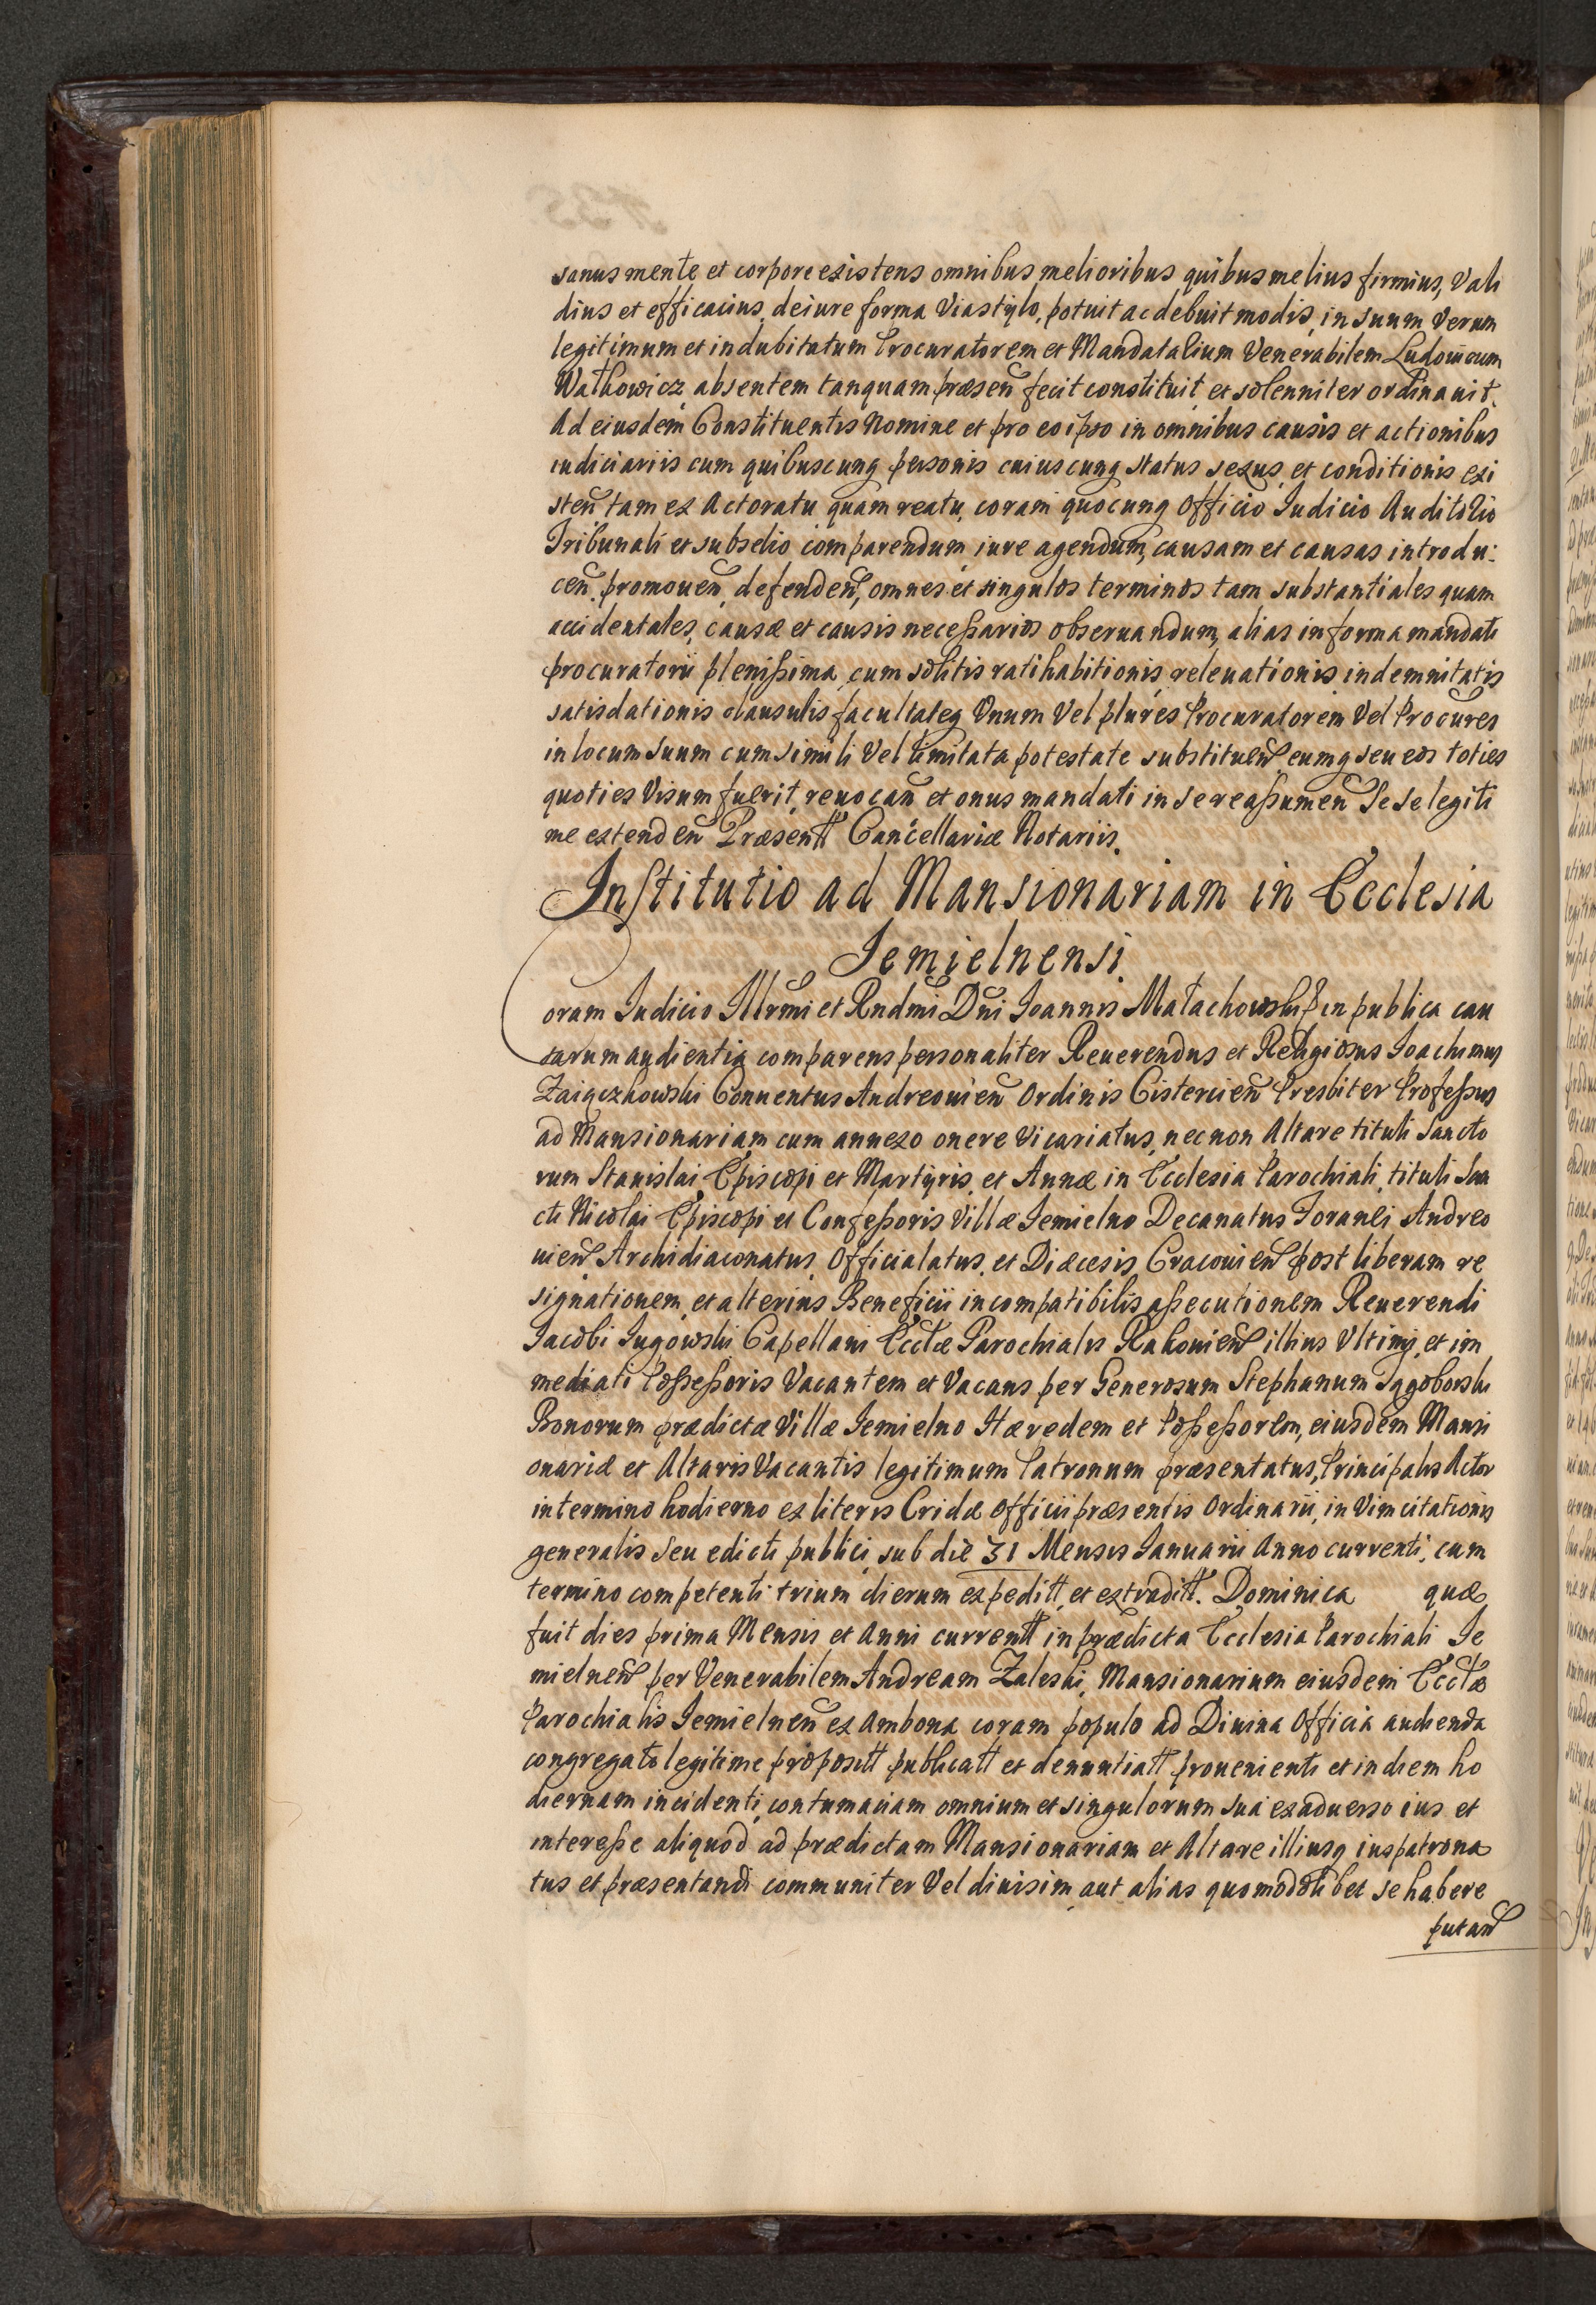 sanus mente et corpore existens omnibus melioribus quibus melius firmius, Vali
dius et efficacius, de iure forma Via stylo, potuit ac debuit modis, in suum Verum
legitimum et indubitatum Procuratorem et Mandatalium Venerabilem Ludovicum
Wathowicz absentem tanquam præsen̄ fecit constituit et solenniter ordinauit.
Ad eiusdem Constituentis Nomine et pro eo ipso in omnibus causis et actionibus
iudiciariis cum quibuscunq personis cuiuscunq status sexus et conditionis exi
sten̄ tam ex Actoratu quam reatu, coram quocunq Officio Iudicio Auditorio
Tribunali et subselio comparendum, iure agendum, causam et causas introdu:
cen̄, promouen̄, defenden̄, omnes et singulos terminos tam substantiales quam
accidentales, causæ et causis necessarios obseruandum, alias in forma mandati
procuratorii plenissima, cum solitis ratihabitionis releuationis indemnitatis
satisdationis clausulis facultateq Vnum Vel plures Procuratorem Vel Procures
in locum suum cum simili Vel limitata potestate substituen̄ eumq seu eos toties
quoties Visum fuerit, reuocan̄ et onus mandati in se reassumen̄ Se se legiti
me extenden̄ Præsentt Cancellariæ Notariis.
Institutio ad Mansionariam in Ecclesia
Iemielnensi
Coram Iudicio Illrmi et Rndmi Dni Ioannis Małachowski in publica cau
sarum audientia comparens personaliter Reuerendus et Religiosus Ioachimus
Zaiączkowski Conuentus Andreouien̄ Ordinis Cistercien̄ Presbiter Professus
ad Mansionariam cum annexo onere Vicariatus, necnon Altare tituli Sancto
rum Stanislai Episcopi et Martyris, et Annæ in Ecclesia Parochiali, tituli San
cti Nicolai Episcopi et Confessoris Villæ Iemielno Decanatus Foranei Andreo
uien̄ Archidiaconatus, Officialatus, et Diæcesis Cracouien̄ post liberam re
signationem, et alterius Beneficii incompatibilis assecutionem Reuerendi
Iacobi Iugowski Capellani Ecctæ Parochialis Rakouien̄ illius Vltimi, et im
mediati Possessoris Vacantem et Vacans per Generosum Stephanum
Bonorum prædictæ Villæ Iemielno Hæredem et Possessorem, eiusdem Mansi
onariæ et Altaris Vacantis legitimum Patronum præsentatus, Principalis Actor
in termino hodierno ex literis Cridæ Officii præsentis Ordinarii, in Vim citationis
generalis seu edicti publici, sub die 31 Mensis Ianuarii Anno currenti, cum
termino competenti trium dierum expeditt, et extraditt. Dominica quæ
fuit dies prima Mensis et Anni currentt in prædicta Ecclesia Parochiali Ie
mielnen̄ per Venerabilem Andream Zaleski, Mansionarium eiusdem Ecctæ
Parochialis Iemielnen̄ ex Ambona coram populo ad Diuina Officia audienda
congregato legitime propositt publicatt et denuntiatt prouenienti et in diem ho
diernam incidenti, contumaciam omnium et singulorum sua ex aduerso ius et
interesse aliquod ad prædictam Mansionariam et Altare illiusq ius patrona
tus et præsentandi communiter Vel diuisim aut alias quomodolibet se habere
putan̄